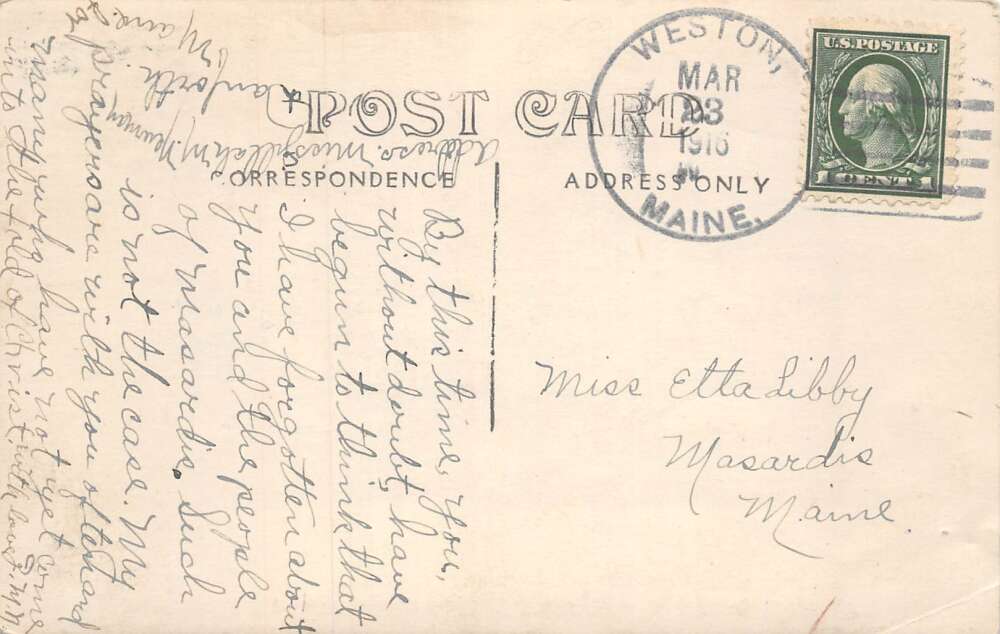 POST CARD
CORRESPONDENCE
ADDRESS ONLY
WESTON,
MAR
23
1916
MAINE.
U.S. POSTAGE
1 CENT 1
Miss Etta Libby
Masardis
Maine.
By this time, you,
without doubt, have
begun to think that
I have forgotten about
you and the people
of Masardis. Such
is not the case. My
prayers are with you often and
many who have not yet come
into the fold of Christ. With love F.M.N.
Address: Miss M. Newman
Danforth
Maine.